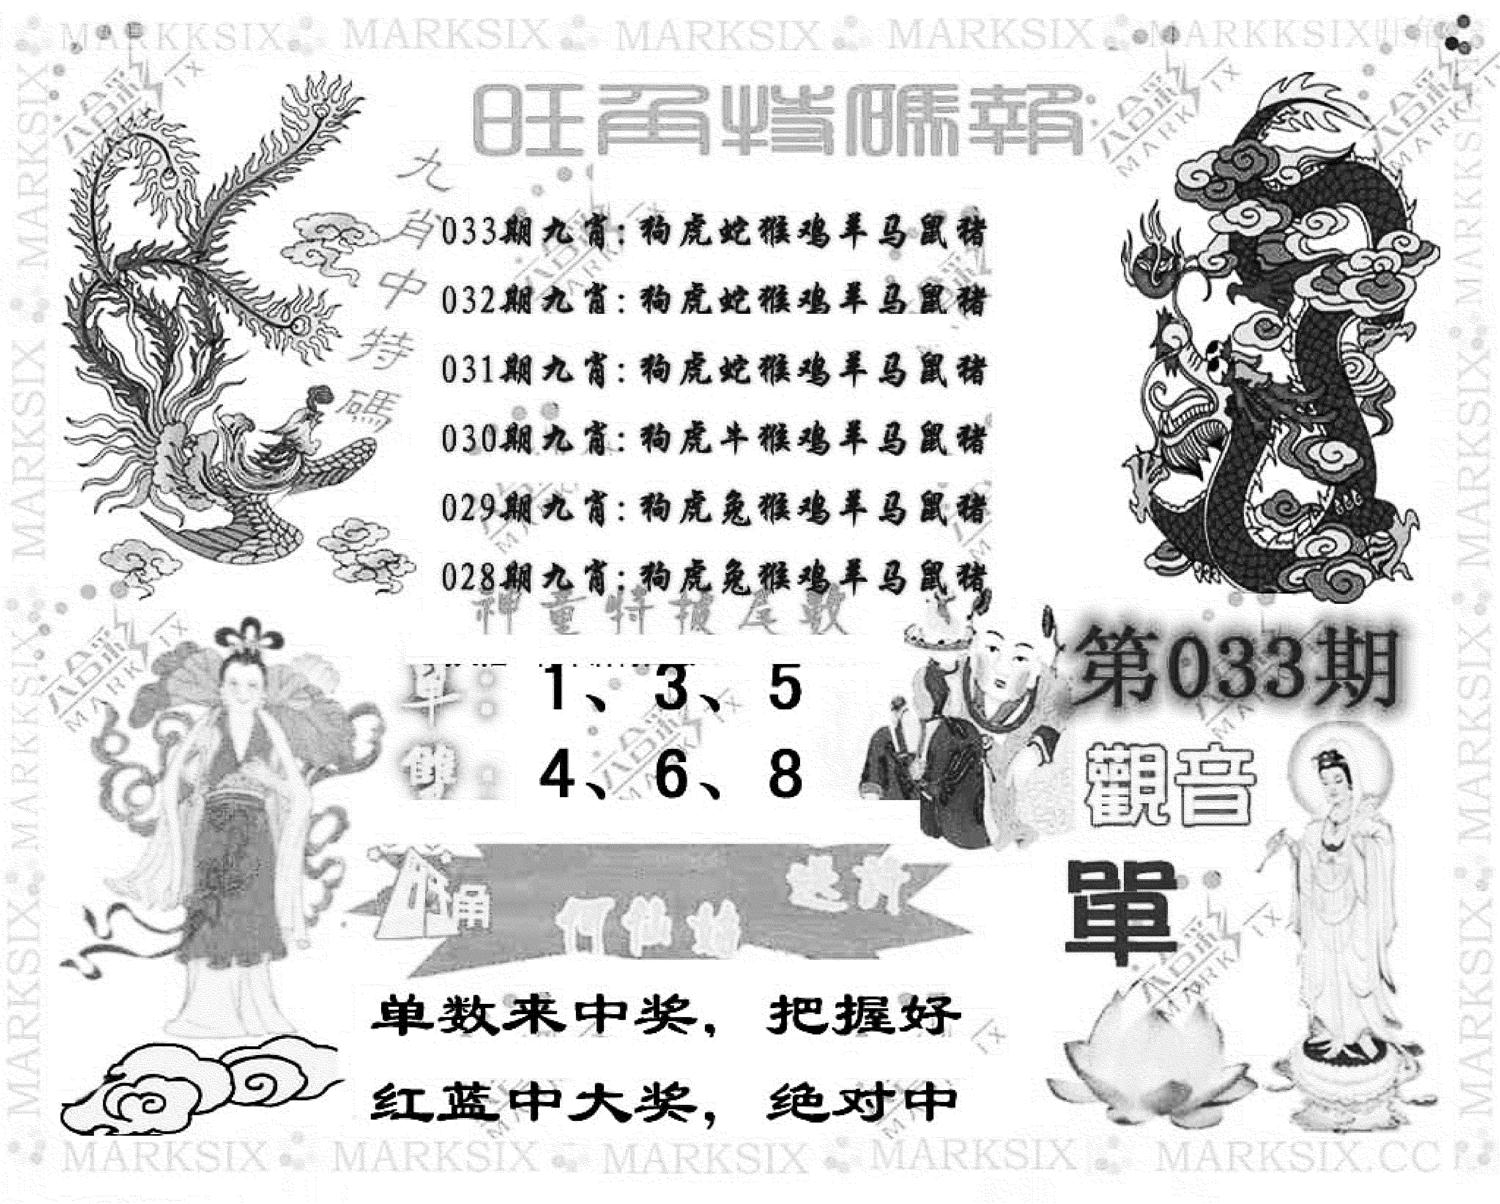 MARKKSIX MARKSIX MARKSIX MARKSIX MARKKSIX
旺角特碼報
九肖中特碼
033期九肖:狗虎蛇猴鸡羊马鼠猪
032期九肖:狗虎蛇猴鸡羊马鼠猪
031期九肖:狗虎蛇猴鸡羊马鼠猪
030期九肖:狗虎牛猴鸡羊马鼠猪
029期九肖:狗虎兔猴鸡羊马鼠猪
028期九肖:狗虎兔猴鸡羊马鼠猪
神童特㨿尾数
單: 1、3、5
雙: 4、6、8
第033期
觀音
單
旺角
单数来中奖，把握好
红蓝中大奖，绝对中
MARKSIX MARKSIX MARKSIX MARKSIX MARKSIX.CC